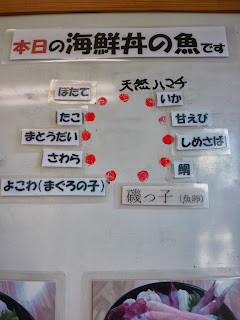 本日の海鮮丼の魚です
天然ハマチ
ほたて
いか
たこ
甘えび
まとうだい
しめさば
さわら
鯛
よこわ(まぐろの子)
磯っ子(魚卵)